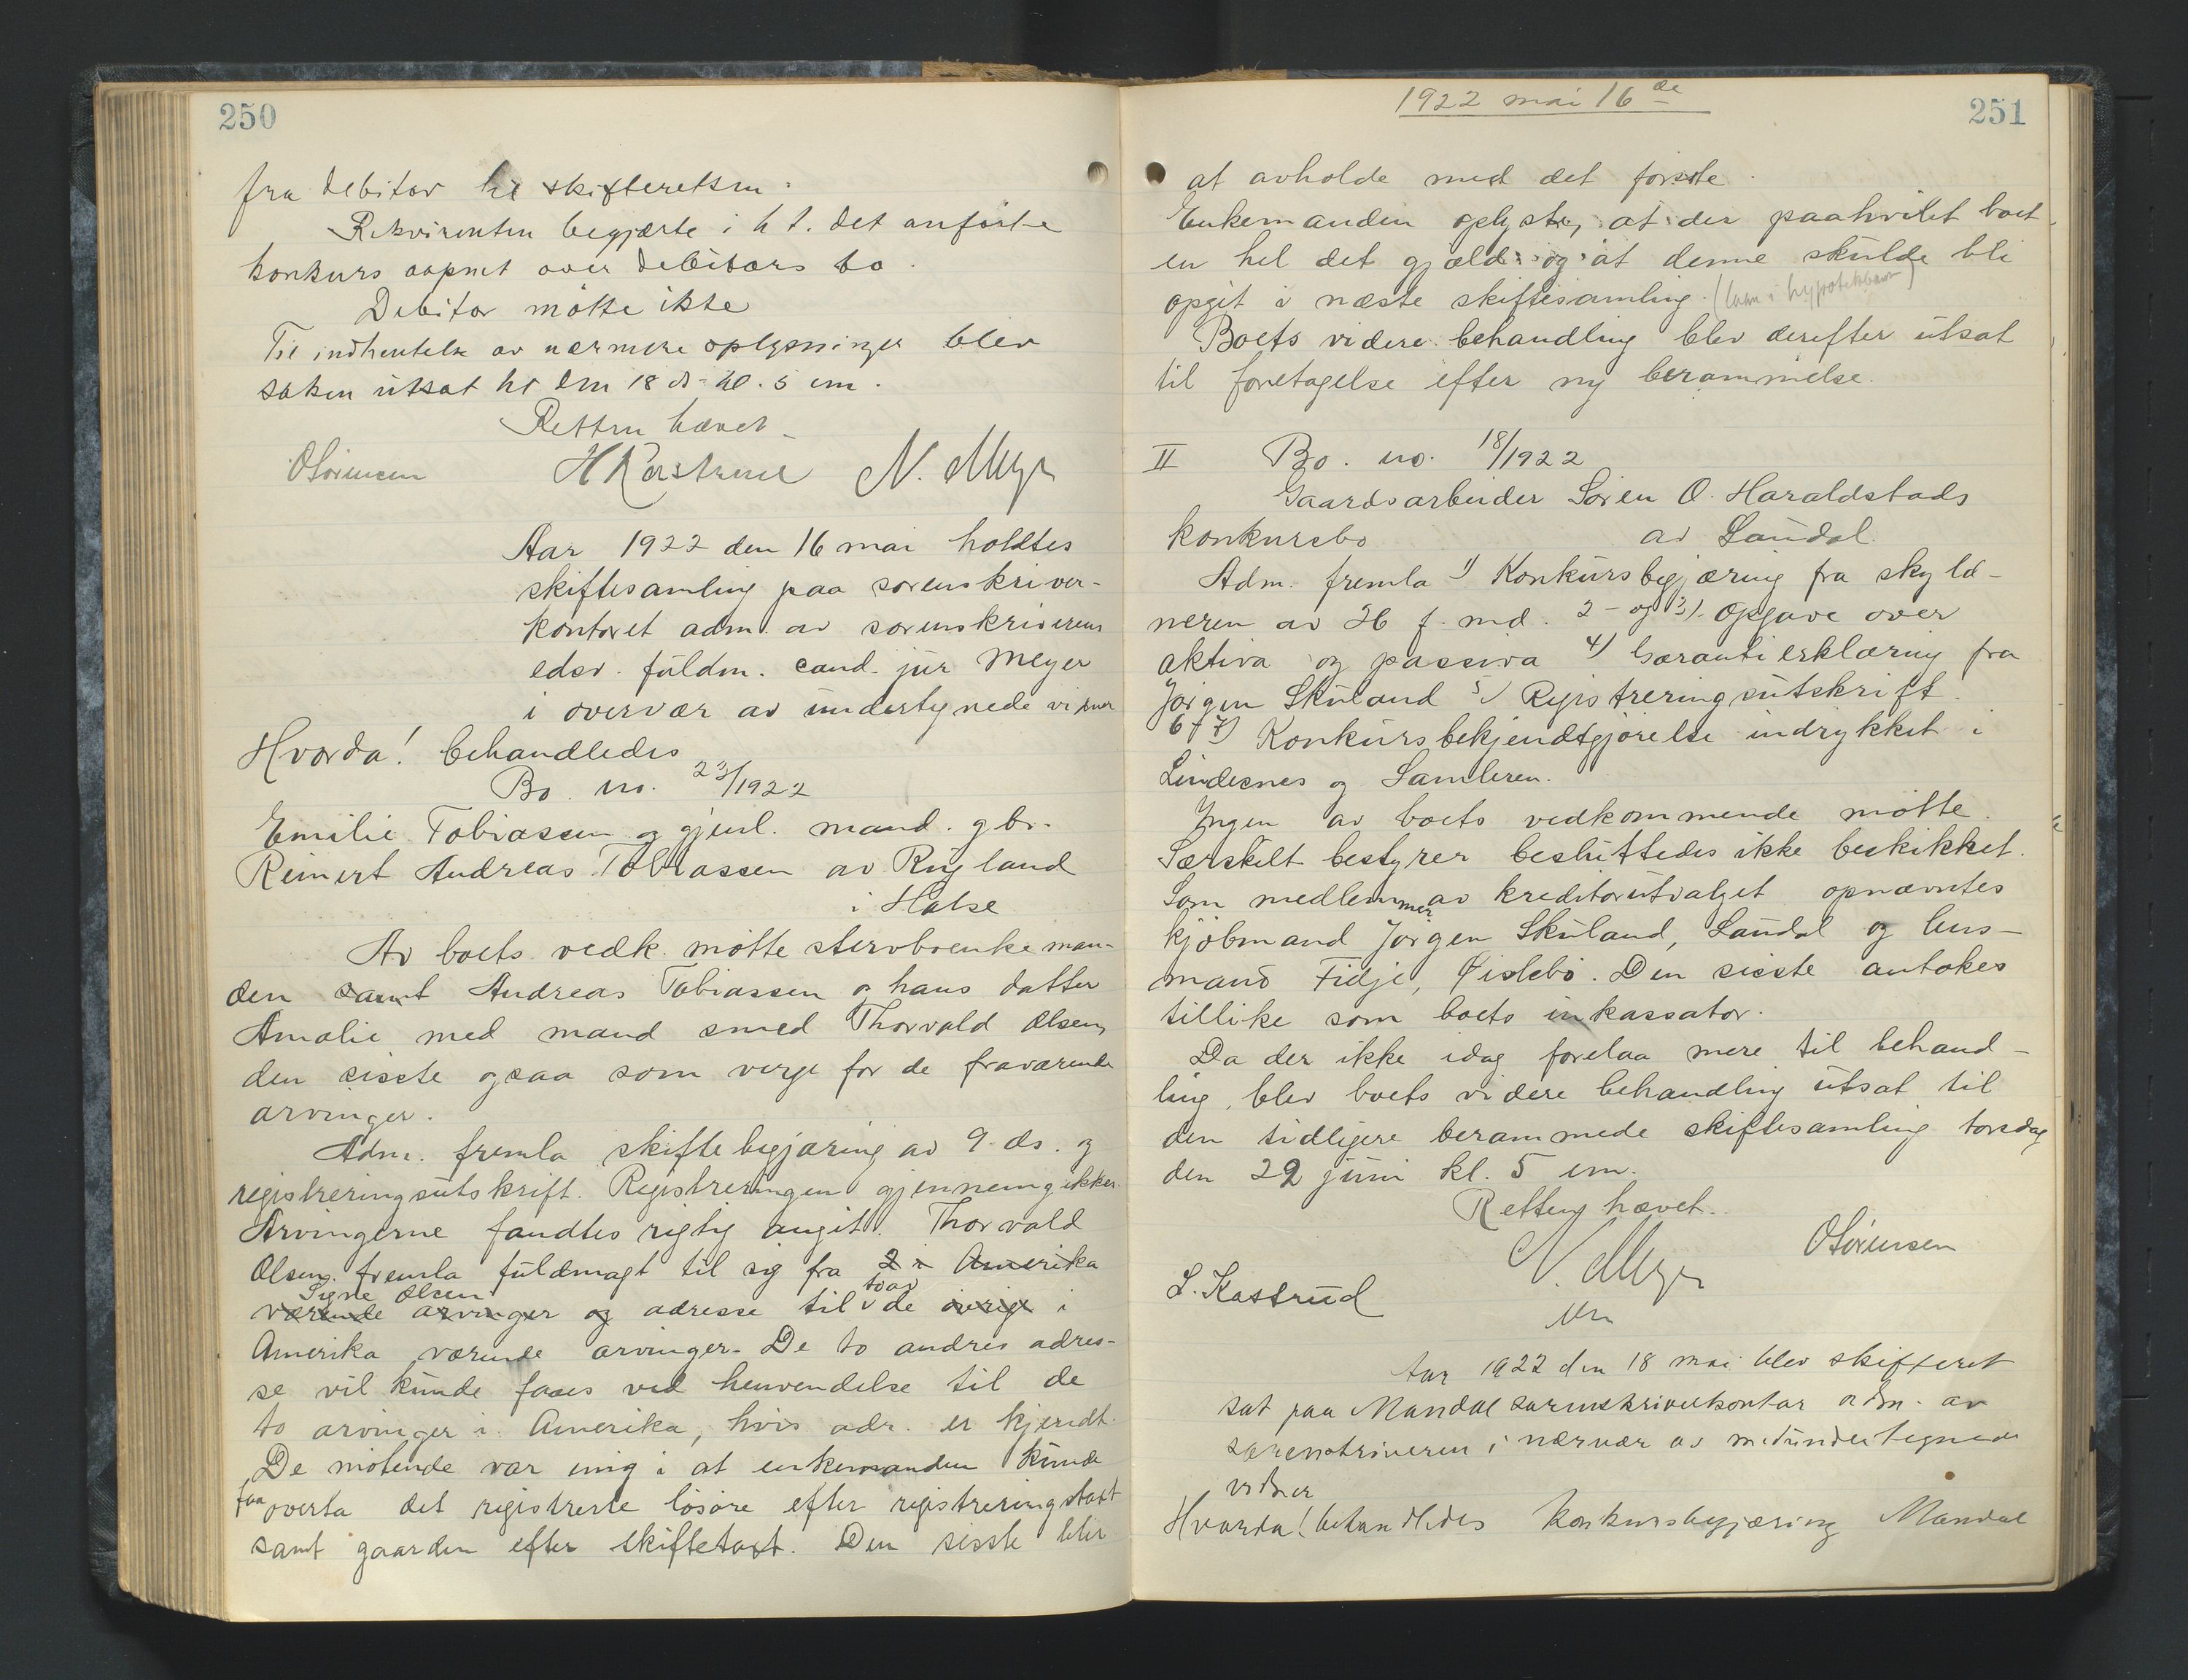 250
fra debitor til skifteretten.
Rekvirenten begjærte i h. t. det anførte
konkurs aapnet over debitors bo.
Debitor møtte ikke
Til indhentelse av nærmere oplysninger blev
saken utsat til den 18 ds. kl. 5 em.
Retten hævet.
OSørensen H Kastrud N. Meyer
Aar 1922 den 16 mai holdtes
skiftesamling paa sorenskriver-
kontoret adm. av sorenskriverens
edsv. fuldm. cand. jur Meyer
i overvær av undertegnede vidner
Hvorda! behandledes
Bo. no. 23/1922
Emilie Tobiassen og gjenl. mand. gbr.
Reinert Andreas Tobiassen av Rugland
i Halse
Av boets vedk. møtte stervboenkeman-
den samt Andreas Tobiassen og hans datter
Amalie med mand smed Thorvald Olsen,
den sisste ogsaa som verge for de fraværende
arvinger.
Adm. fremla skiftebegjæring av 9 ds. og
registreringsutskrift. Registreringen gjennemgikkes.
Arvingerne fandtes rigtig angit. Thorvald
Olsen fremla fuldmagt til sig fra 2 i Amerika
Signe Olsen to av
værende arvinger og adresse til de øvrige i
Amerika værende arvinger. De to andres adres-
se vil kunde faaes ved henvendelse til de
to arvinger i Amerika, hvis adr. er kjendt.
De møtende var enig i at enkemanden kunde
faa overta det registrerte løsøre efter registreringstaxt
samt gaarden efter skiftetaxt. Den sisste blir
1922 mai 16de
251
at avholde med det første.
Enkemanden oplyste, at der paahvilet boet
en hel del gjæld og at denne skulde bli
opgit i næste skiftesamling. (laan i hypotekbank)
Boets videre behandling blev derefter utsat
til foretagelse efter ny berammelse.
II Bo. no. 18/1922
Gaardsarbeider Søren O. Haraldstads
konkursbo av Laudal.
Adm. fremla 1) Konkursbegjæring fra skyld-
neren av 26 f. md. 2- og 3). Opgave over
aktiva og passiva 4) Garantierklæring fra
Jørgen Skuland 5) Registreringsutskrift.
6+7) Konkursbekjendtgjørelse indrykket i
Lindesnes og Samleren.
Ingen av boets vedkommende møtte.
Særskilt bestyrer besluttedes ikke beskikket.
Som medlemmer av kreditorutvalget opnævntes
kjøbmand Jørgen Skuland, Laudal og lens-
mand Fidje, Øislebø. Den sisste antokes
tillike som boets inkassator.
Da der ikke idag forelaa mere til behand-
ling, blev boets videre behandling utsat til
den tidligere berammede skiftesamling torsdag
den 29 juni kl. 5 em.
Retten hævet.
N. Meyer OSørensen
L. Kastrud
Aar 1922 den 18 mai blev skifteret
sat paa Mandal sorenskriverkontor adm. av
sorenskriveren i nærvær av medundertegnede
vidner
Hvorda! behandledes konkursbegjæring Mandal